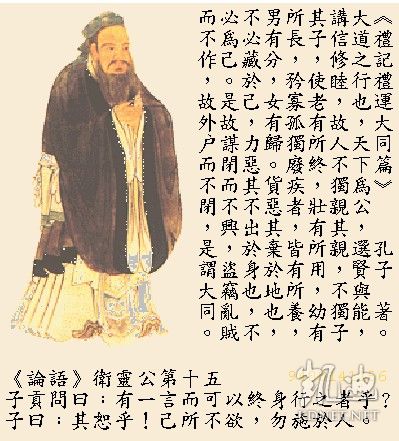 《禮記禮運大同篇》 孔子 著。
大道之行也，天下爲公，選賢與能，
講信修睦，故人不獨親其親，不獨子
其子，使老有所終，壯有所用，幼有
所長，矜寡孤獨廢疾者，皆有所養，
男有分，女有歸。貨惡其棄於地也，
不必藏於己，力惡其不出於身也，不
必爲己。是故謀閉而不興，盜竊亂賊
而不作，故外戶而不閉，是謂大同。
《論語》衛靈公第十五
子貢問曰：有一言而可以終身行之者乎？
子曰：其恕乎！己所不欲，勿施於人。
凯迪
KDNET.NET